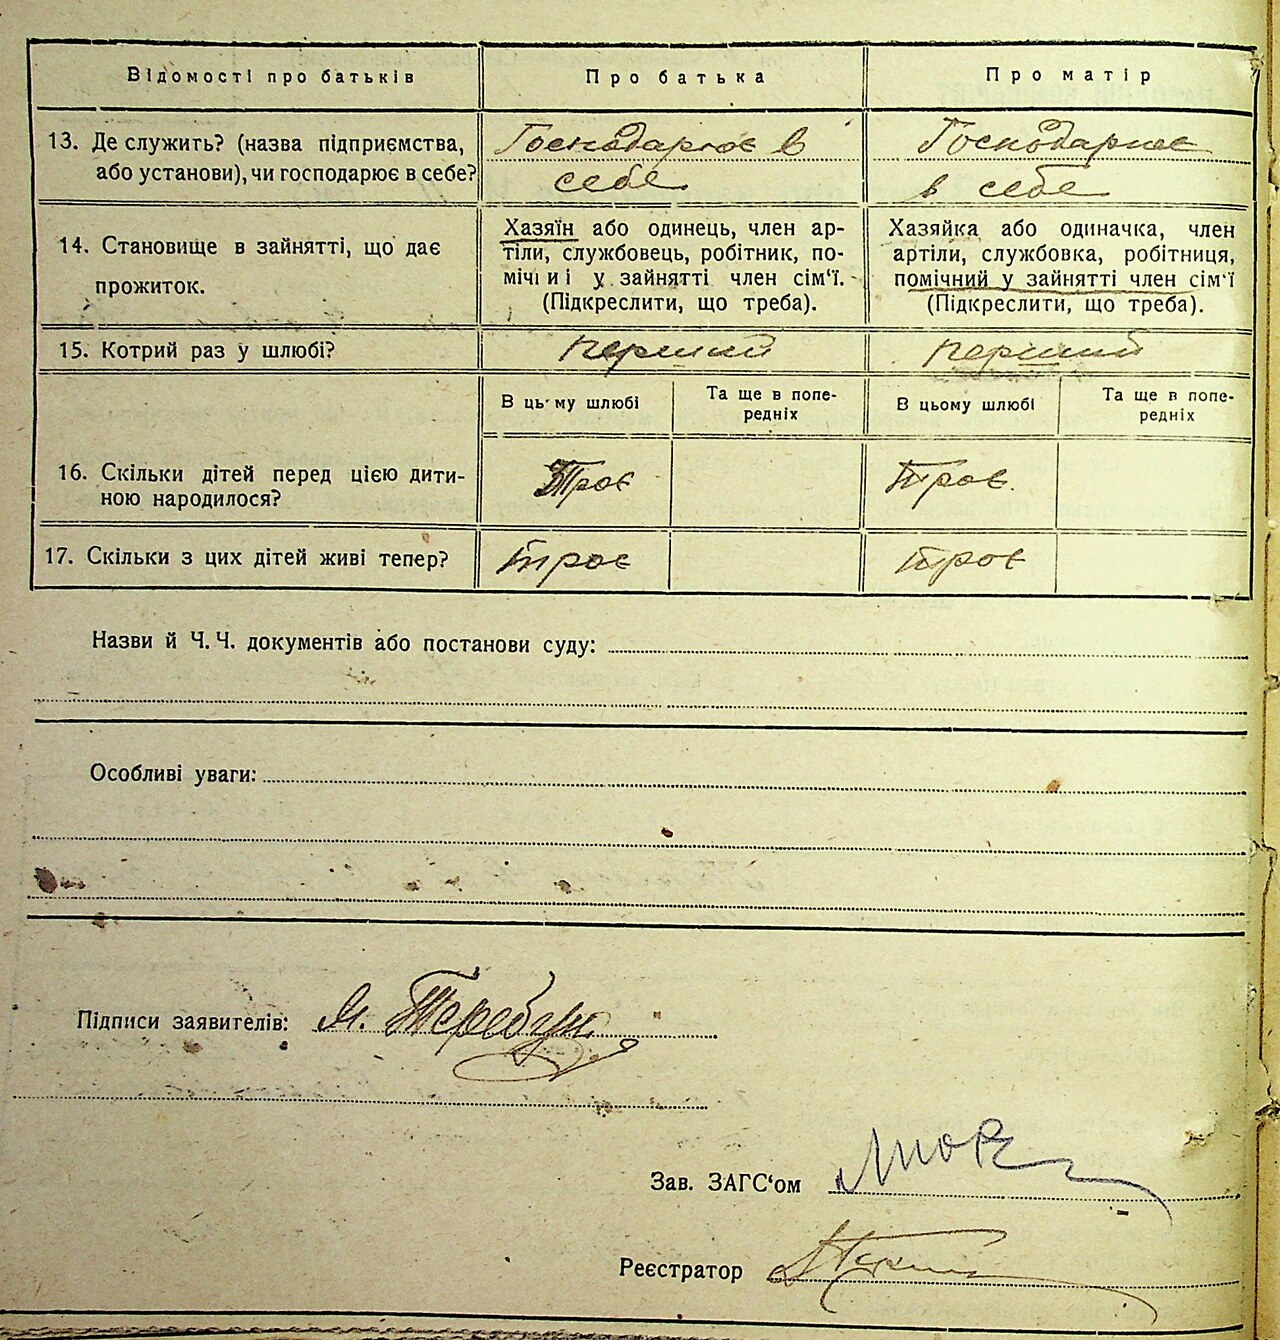 Відомості про батьків
Про батька
Про матір
13. Де служить? (назва підприємства,
або установи), чи господарює в себе?
Господарює в
себе
Господарює
в себе
14. Становище в зайнятті, що дає
прожиток.
Хазяїн або одинець, член ар-
тіли, службовець, робітник, по-
мічниі у зайнятті член сім‘ї.
(Підкреслити, що треба).
Хазяйка або одиначка, член
артіли, службовка, робітниця,
помічний у зайнятті член сім‘ї
(Підкреслити, що треба).
15. Котрий раз у шлюбі?
перший
перший
В цьому шлюбі
Та ще в попе-
редніх
В цьому шлюбі
Та ще в попе-
редніх
16. Скільки дітей перед цією дити-
ною народилося?
Троє
Троє
17. Скільки з цих дітей живі тепер?
троє
троє
Назви й Ч. Ч. документів або постанови суду:
Особливі уваги:
Підписи заявителів: Теребун
Зав. ЗАГС‘ом
Реєстратор